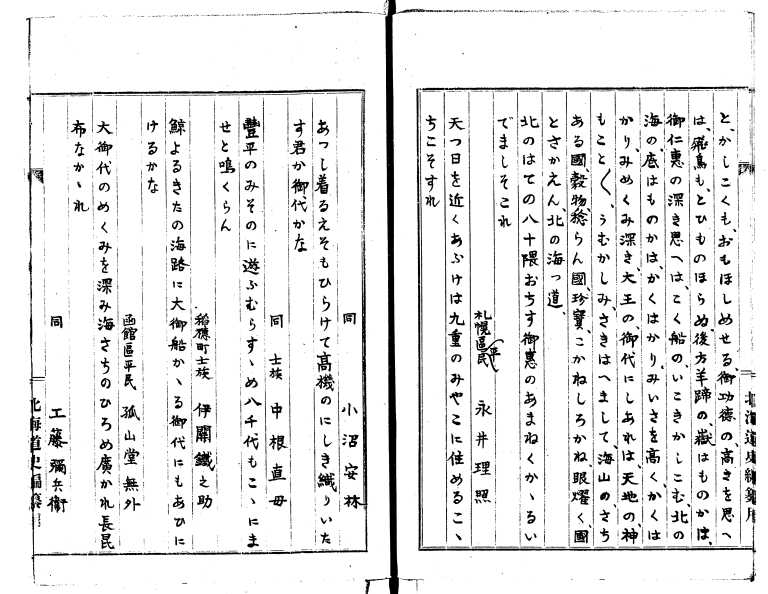 と、かしこくも、おもほしめせる、御功徳の、高きを思へ
は、飛鳥も、とひものほらぬ、後方羊蹄の、嶽はものかは、
御仁惠の深き思へは、こく船の、いこきかしこむ北の
海の、底はものかは、かくはかり、みいさを高く、かくは
かり、みめくみ深き、大王の、御代にしあれは、天地の、神
もこと〱、うむかしみさきはへまして、海山の、さち
ある國、穀物、稔らん國、珍寶、こかねしろかね、眼燿く、國
とさかえん、北の海つ道、
北のはての八十隈おちす御惠のあまねくかゝるい
でましそこれ
札幌區平民 永井理照
天つ日を近くあふけは九重のみやこに住めるこゝ
ちこそすれ
北海道史編纂用
同 小沼安林
あつし着るえそもひらけて高機のにしき織りいた
す君か御代かな
同 士族 中根直毋
豐平のみそのに遊ふむらすゝめ八千代もこゝにま
せと鳴くらん
稻穂町士族 伊關鐵之助
鯨よるきたの海路に大御船かゝる御代にもあひに
けるかな
函館區平民 孤山堂無外
大御代のめくみを深み海さちのひろめ廣かれ長昆
布なかゝれ
同 工藤彌兵衞
北海道史編纂用